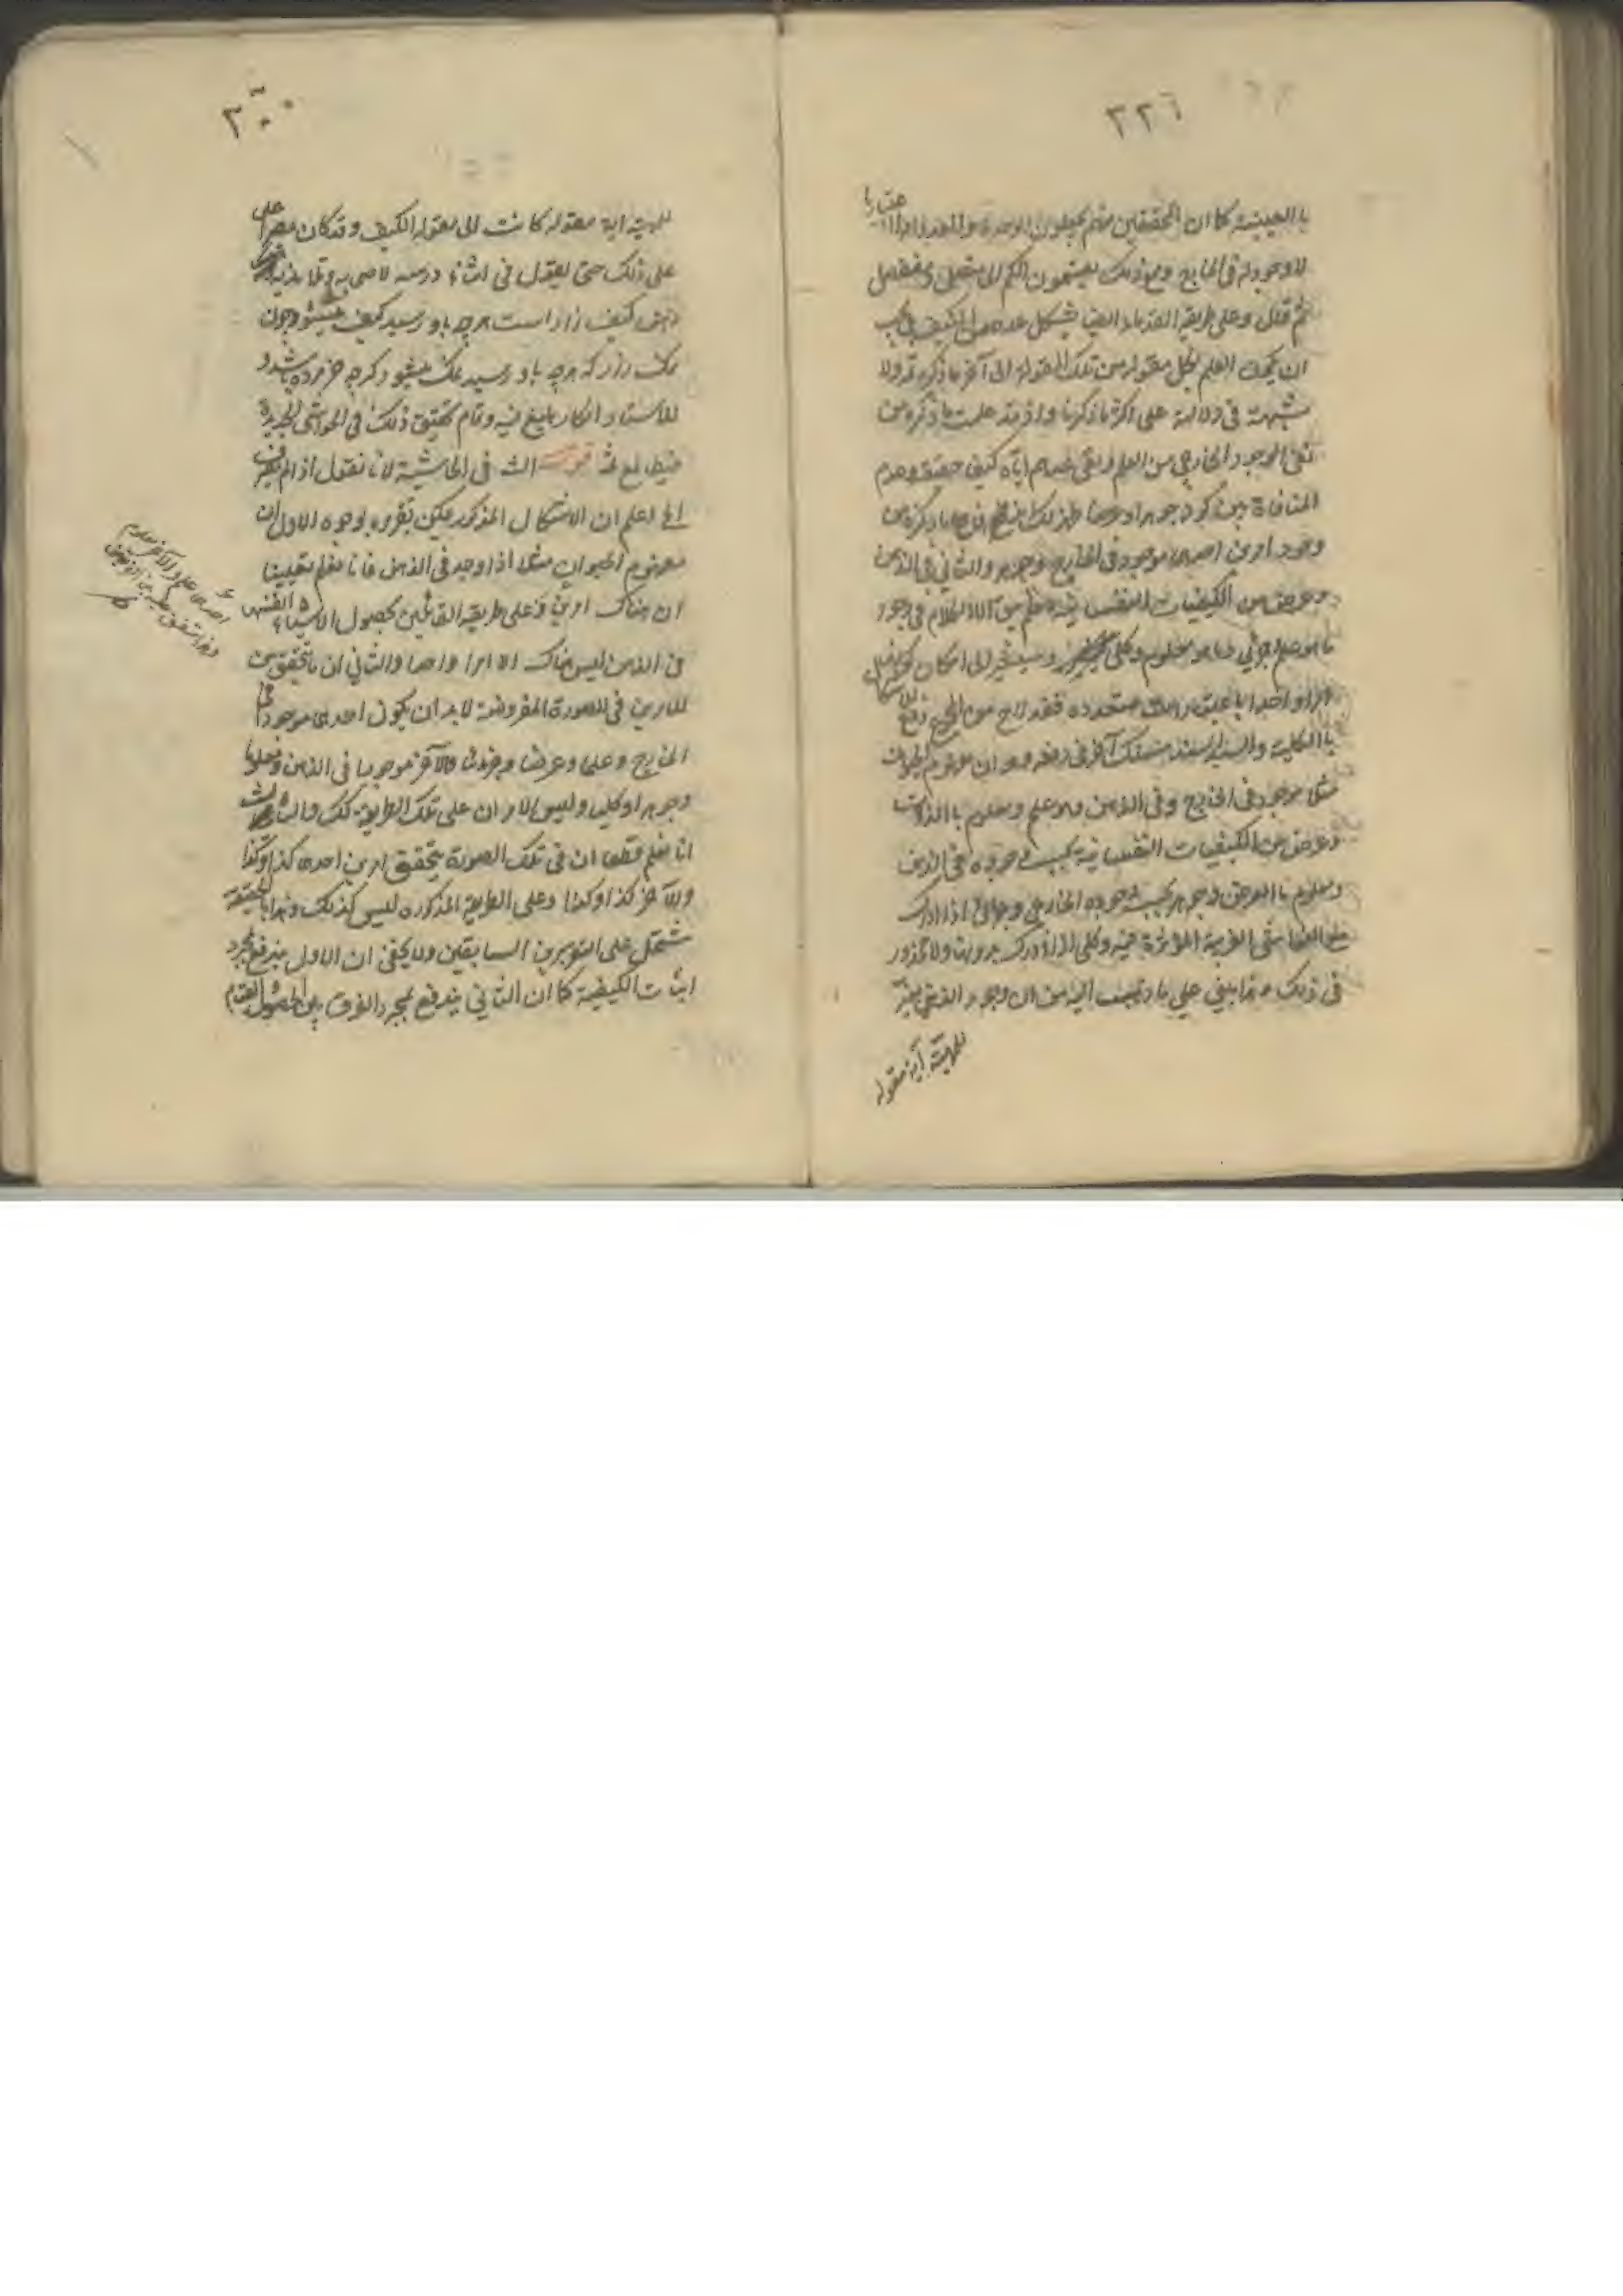 ٣٢٦
با العينية كما ان المحققين منهم يجعلون الوحدة والعدد امرا اعتباريا
لا وجود له في الخارج ومع ذلك يقسمون الكم الى متصل ومنفصل
ثم قال وعلى طريقة القدماء ايضا يشكل عدهم الكيف
ان العلم بكل مقولة من تلك المقولة الى آخر ما ذكره ولا
شبهة في دلالة على اكثر ما ذكرنا واذ قد علمت ما ذكره من
نفي الوجود الخارجي من العلم وبقي عدهم اياه كيف حقيقة وعدم
المنافاة بين كونه جوهرا وعرضا ما ذكره من
وجود امرين احدهما موجود في الخارج وجوهر والثاني في الذهن
وعرض من الكيفيات النفسانية من الكلام في وجود
ما هو علم جزئي وما هو معلوم وكلي وسيشير الى امكان كون
امرا واحدا باعتبارات متعدده فقد لاح من الجميع دفع الاشكال
با الكلية والسيد السند مسلك آخر في دفعه وهو ان مفهوم الحيوان
مثلا موجود في الخارج وفي الذهن وهو علم ومعلوم با الذات
وعرض من الكيفيات النفسانية بحسب وجوده في الذهن
ومعلوم با العرض وجوهر بحسب وجوده الخارجي وجزئي اذا ادرك
مع الغواشي الغريبة المؤثرة فيه وكلي اذا ادرك بدونها ولا محذور
في ذلك هذا مبني على ما ذهب اليه من ان وجود الذهني يغير
للمهية آية مقوله
٣٠٠
للمهية اية مقولة كانت الى مقولة الكيف وقد كان مصرا على
على ذلك حتى يقول في اثناء درسه لاصحابه وتلامذته
ذهن كيف زار است هر چه باو رسيد كيف ميشود چون
نمك زار كه هر چه باو رسيد نمك ميشود كرچه خر مرده باشد و
للاستاد انكار بليغ فيه وتمام تحقيق ذلك في الحواشي الجديدة
فليطالع ثمة قوله في الحاشية لانا نقول اذ لم يفرق
الخ اعلم ان الاشكال المذكور يمكن تقريره بوجوه الاول ان
مفهوم الحيوان مثلا اذا وجد في الذهن فانا نعلم يقينا
ان هناك امرين وعلى طريقة القائلين بحصول الاشياء بانفسها
في الذهن ليس هناك الا امرا واحدا والثاني ان ما تحقق من
الامرين في الصورة المفروضة لا بد ان يكون احدهما موجودا في
الخارج وعلما وعرضا وجزئيا والآخر موجودا في الذهن ومعلوما
وجوهرا وكليا وليس الامران على تلك الطريقة كك والثالث
انا نعلم قطعا ان في تلك الصورة يتحقق امرين احدهما كذا وكذا
والآخر كذا وكذا وعلى الطريقة المذكوره ليس كذلك وهذا بالحقيقة
مشتمل على التقريرين السابقين ولا يخفى ان الاول يندفع بمجرد
اثبات الكيفية كما ان الثاني يندفع بمجرد الفرق بين الحصول والقيام
احدهما علم والآخر معلوم
وهذا متفق عليه بين الفريقين